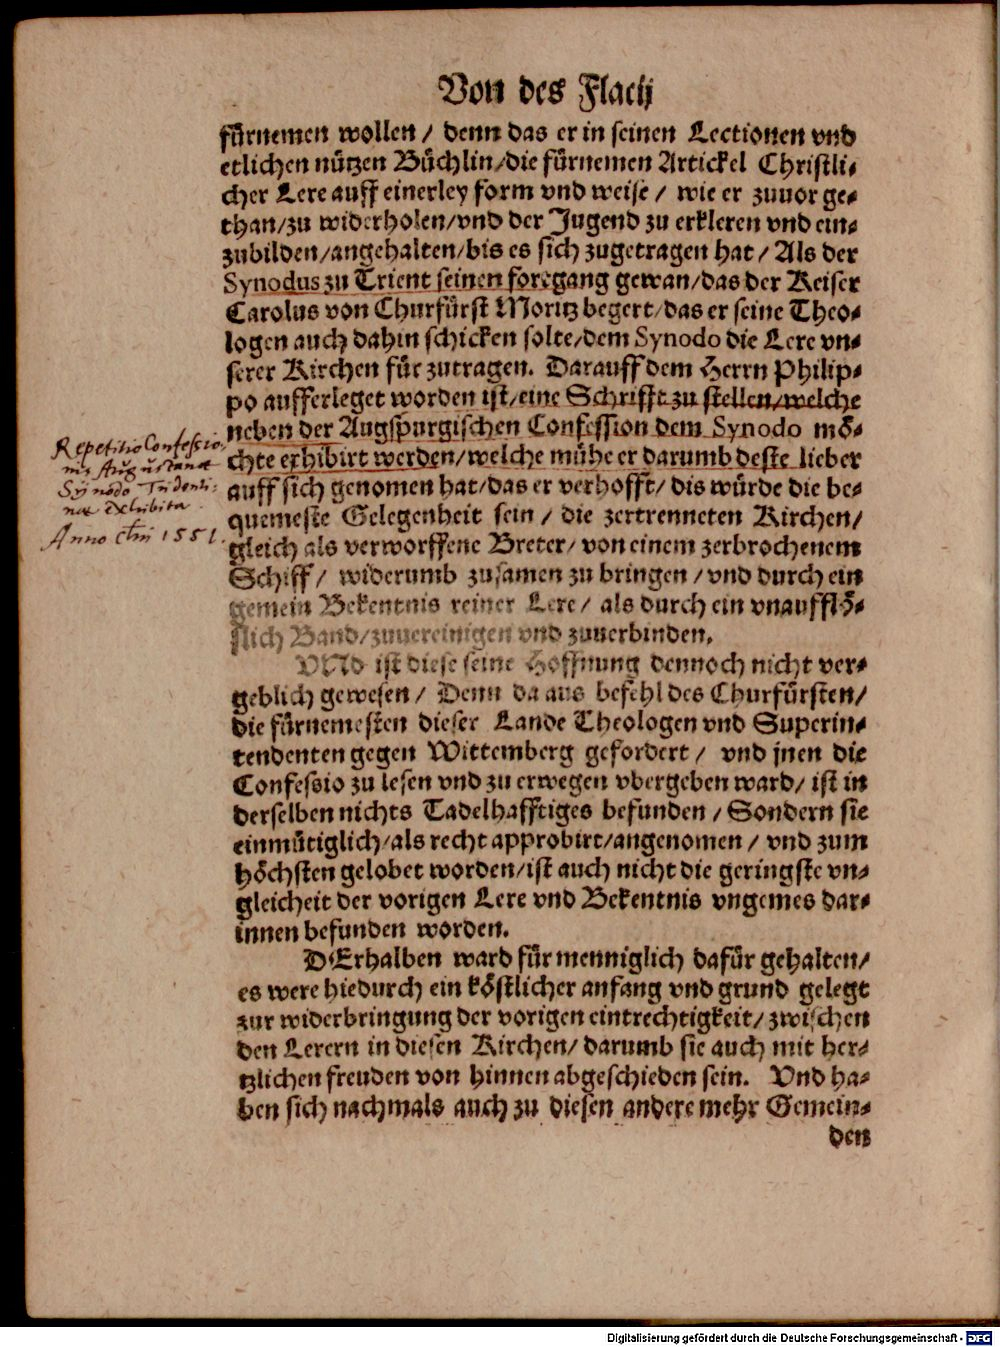 Von des Flacij
fürnemen wollen / denn das er in seinen Lectionen vnd
etlichen nützen Büchlin/die fürnemen Artickel Christli-
cher Lere auff einerley form vnd weise / wie er zuuor ge-
than/zu widerholen/vnd der Jugend zu erkleren vnd ein-
zubilden/angehalten/bis es sich zugetragen hat / Als der
Synodus zu Trient seinen foregang gewan/das der Keiser
Carolus von Churfürst Moritz begert/das er seine Theo-
logen auch dahin schicken solte/dem Synodo die Lere vn-
serer Kirchen für zutragen. Darauff dem Herrn Philip-
po aufferleget worden ist/eine Schrifft zu stellen/welche
neben der Augspurgischen Confession dem Synodo mö-
chte exhibirt werden/welche mühe er darumb deste lieber
auff sich genomen hat/das er verhofft/ dis würde die be-
quemeste Gelegenheit sein / die zertrenneten Kirchen/
gleich als verworffene Breter/ von einem zerbrochenem
Schiff/ widerumb zusamen zu bringen / vnd durch ein
gemein Bekentnis reiner Lere/ als durch ein vnaufflö-
slich Band/zuuereinigen vnd zuuerbinden.
VNd ist diese seine Hoffnung dennoch nicht ver-
geblich gewesen / Denn da aus befehl des Churfürsten/
die fürnemesten dieser Lande Theologen vnd Superin-
tendenten gegen Wittemberg gefordert / vnd jnen die
Confessio zu lesen vnd zu erwegen vbergeben ward/ ist in
derselben nichts Tadelhafftiges befunden / Sondern sie
einmütiglich/als recht approbirt/angenomen / vnd zum
höchsten gelobet worden/ist auch nicht die geringste vn-
gleicheit der vorigen Lere vnd Bekentnis vngemes dar-
innen befunden worden.
DErhalben ward für menniglich dafür gehalten/
es were hiedurch ein köstlicher anfang vnd grund gelegt
zur widerbringung der vorigen eintrechtigkeit/ zwischen
den Lerern in diesen Kirchen/ darumb sie auch mit her-
tzlichen freuden von hinnen abgeschieden sein. Vnd ha-
ben sich nachmals auch zu diesen andere mehr Gemein-
den
Repetitio Confessio-
nis Augustanae
Synodo Tridenti-
nae exhibita
Anno 1551.
Digitalisierung gefördert durch die Deutsche Forschungsgemeinschaft - DFG